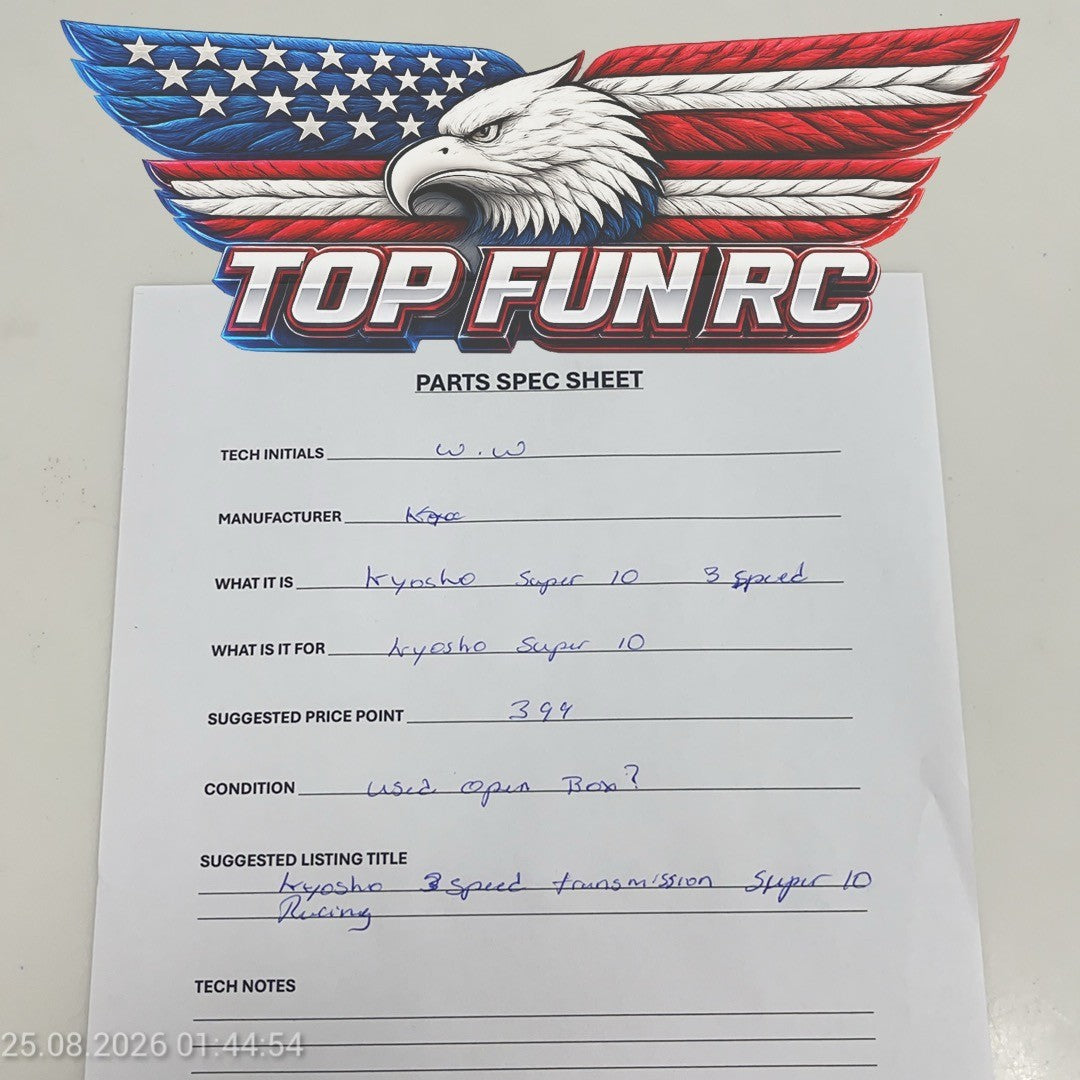 TOP FUN RC
PARTS SPEC SHEET
TECH INITIALS W.W
MANUFACTURER
WHAT IT IS Kyosho Super 10 3 Speed
WHAT IS IT FOR Kyosho Super 10
SUGGESTED PRICE POINT 399
CONDITION Used Open Box?
SUGGESTED LISTING TITLE
Kyosho 3 Speed transmission Super 10
Racing
TECH NOTES
25.08.2026 01:44:54